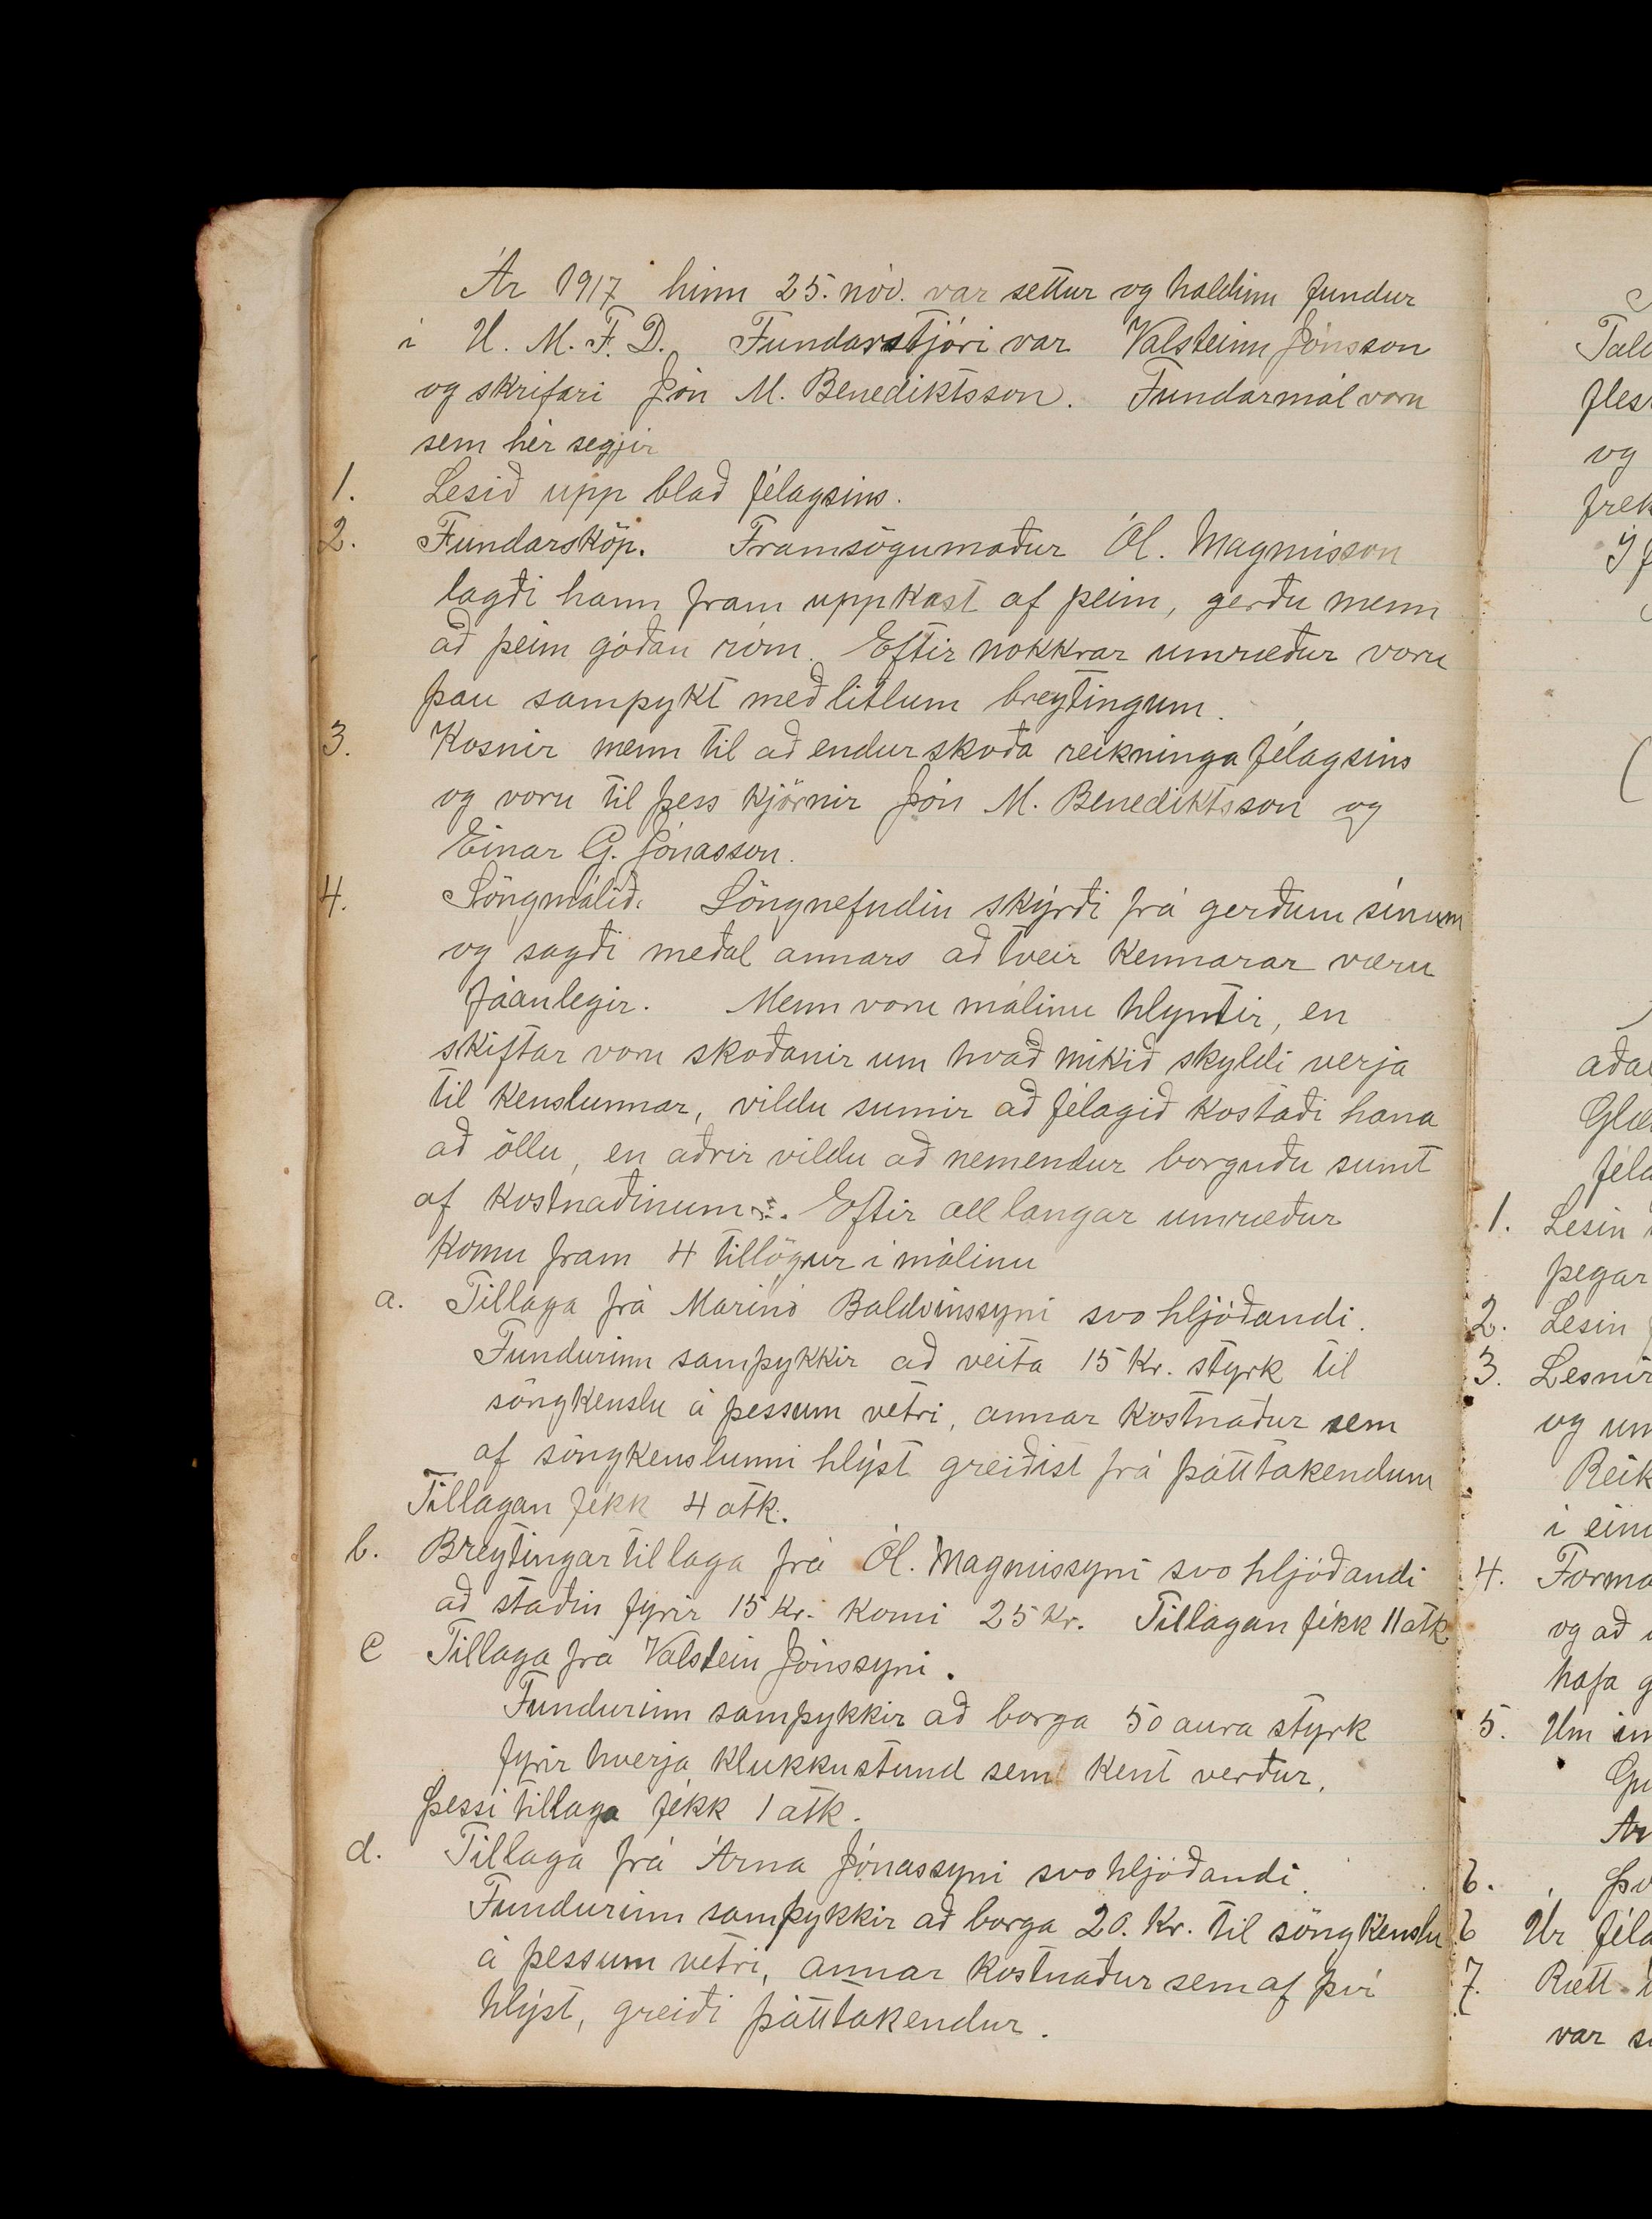 Ár 1917 hinn 25. nóv. var settur og haldinn fundur
í U. M. F. D. Fundarstjóri var Valsteinn Jónsson
og skrifari Jón M. Benediktsson. Fundarmál voru
sem hér segjir
1. Lesið upp blað félagsins.
2. Fundarsköp. Framsögumaður Ól. Magnússon
lagði hann fram uppkast af þeim, gerðu menn
að þeim góðan róm. Eftir nokkrar umræður voru
þau samþykt með litlum breytingum.
3. Kosnir menn til að endurskoða reikninga félagsins
og voru til þess kjörnir Jón M. Benediktsson og
Einar G. Jónasson.
4. Söngmálið. Söngnefndin skýrði frá gerðum sínum
og sagði meðal annars að tveir kennarar væru
fáanlegir. Menn voru málinu hlyntir, en
skiftar voru skoðanir um hvað mikið skyldi verja
til kenslunnar, vildu sumir að félagið kostaði hana
að öllu, en aðrir vildu að nemendur borguðu sumt
af kostnaðinum. Eftir all langar umræður
komu fram 4 tillögur í málinu
a. Tillaga frá Marinó Baldvinssyni svo hljóðandi.
Fundurinn samþykkir að veita 15 kr. styrk til
söngkenslu á þessum vetri, annar kostnaður sem
af söngkenslunni hlýst greiðist frá þátttakendum
Tillagan fékk 4 atk.
b. Breytingartillaga frá Ól. Magnússyni svo hljóðandi
að staðin fyrir 15 kr. komi 25 kr. Tillagan fékk 11 atk
c Tillaga frá Valstein Jónssyni.
Fundurinn samþykkir að borga 50 aura styrk
fyrir hverja klukkustund sem kent verður.
Þessi tillaga fékk 1 atk.
d. Tillaga frá Árna Jónassyni svohljóðandi.
Fundurinn samþykkir að borga 20. kr. til söngkenslu
á þessum vetri, annar kostnaður sem af því
hlýst, greiði þátttakendur.
og
1. Lesin
þegar
2. Lesin
3. Lesnir
og
í
4.
og að
hafa
5. Um
6.
6 Úr
7. Rætt
var